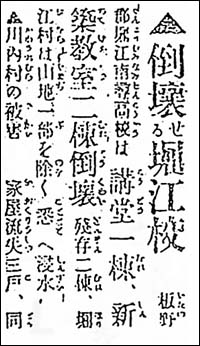 倒壊せる堀江校
板野
郡堀江南等高校は講堂一棟、新
築教室二棟倒壊 残存二棟、堀
江村は山地一部を除く悉く浸水
川内村の被害 家屋流失三戸、同